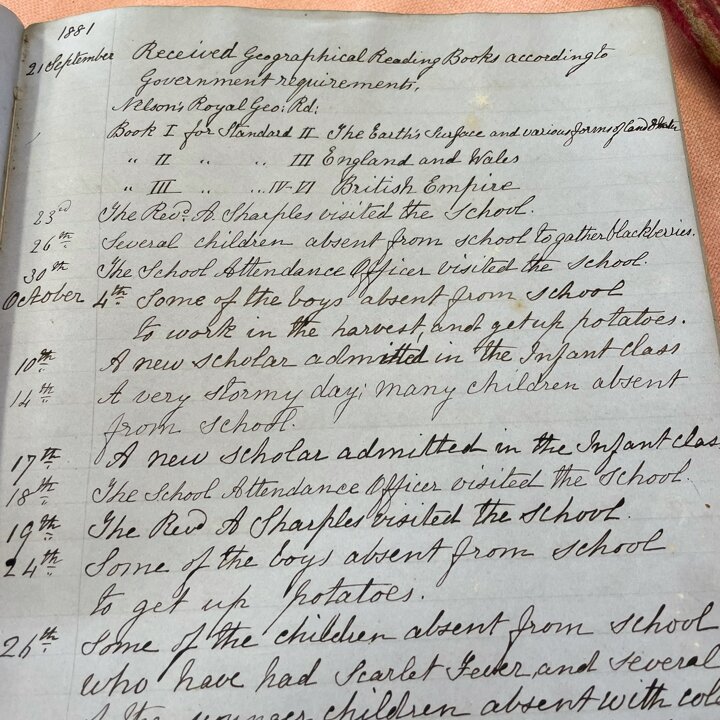 1881
21 September Received Geographical Reading Books according to
Government requirements.
Nelson's Royal Geo: Rd:
Book I for Standard II The Earth's Surface and various forms of land &
" II " " III England and Wales
" III " " IV-VI British Empire
23rd The Revd. A. Sharples visited the School.
26th Several children absent from school to gather blackberries.
30th The School Attendance Officer visited the school.
October 4th Some of the boys absent from school
to work in the harvest, and get up potatoes.
10th A new scholar admitted in the Infant Class
14th A very stormy day; many children absent
from school.
17th A new scholar admitted in the Infant Clas
18th The School Attendance Officer visited the school.
19th The Revd A Sharples visited the school.
24th Some of the boys absent from school
to get up potatoes.
26th Some of the children absent from school
who have had Scarlet Fever, and several
of the younger children absent with col